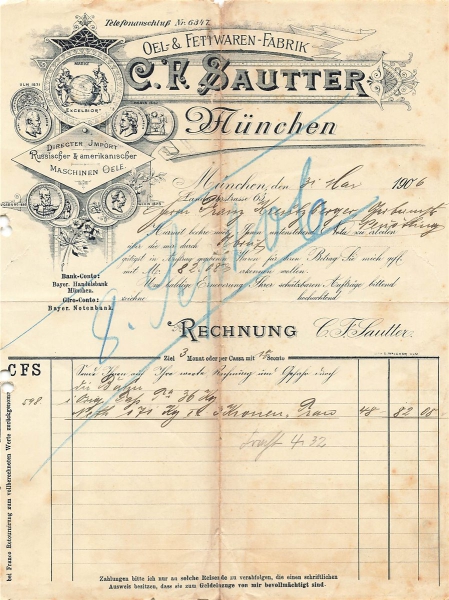 Telefonanschluß Nr. 6347.
OEL- & FETTWAREN-FABRIK
C. F. SAUTTER
München
ULM 1871
MARKE
EXCELSIOR
DIRECTER IMPORT
RUSSISCHER & AMERIKANISCHER
MASCHINEN OELE.
München, den 31 Mai 1906
Landstrasse 63
Herrn Franz
Hiermit beehre mich Ihnen untenstehende Nota zu erteilen
über die mir durch
gütigst in Auftrag gegebene Waren für deren Betrag Sie mich gefl.
mit M. 82.08 erkennen wollen.
Um baldige Erneuerung Ihrer schätzbaren Aufträge bittend
zeichne hochachtend
Bank-Conto:
Bayer. Handelsbank
München.
Giro-Conto:
Bayer. Notenbank.
RECHNUNG C. F. Sautter.
Ziel 3 Monat oder per Cassa mit % Sconto
CFS
Sende Ihnen auf Ihre werte Rechnung und Gefahr durch
die Bahn
598 1 Orig. Fass Ta 36 Kg
Netto 171 Kg 3 Kronen 48 82 08
Fracht 4.32
bei Franco Retournirung zum vollberechneten Werte zurückgenommen
Zahlungen bitte ich nur an solche Reisende zu verabfolgen, die einen schriftlichen
Ausweis besitzen, dass sie zum Geldeinzuge von mir bevollmächtigt sind.